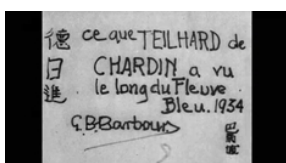 德日進
ce que TEILHARD de
CHARDIN a vu
le long du Fleuve
Bleu. 1934
G.B.Barbour
巴爾博